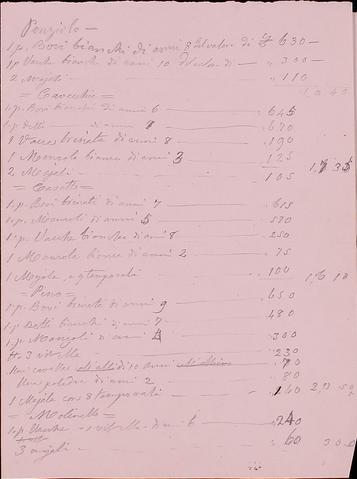 Ponzielo —
1 p. Bovi bianchi di anni 8 del valore di £ 630 —
1 p. Vacche bianche di anni 10 del valor di — " 300 —
2 Majali — " 110
1040
= Cavecchio =
1 p. Bovi bianchi di anni 6 — " 645
1 p. detti di anni 8 — " 670
1 Vacca biscita di anni 8 — " 190
1 Manzola bianca di anni 3 — " 125
2 Majali — " 105
1735
= Casotto =
1 p. Bovi di anni 7 — " 615
1 p. Manzoli di anni 5 — " 570
1 p. Vacche bianche di anni 8 — " 250
1 Manzola bianca di anni 2 — " 75
1 Majale, e 9 temporali — " 100
1610
= Pino =
1 p. Bovi di anni 9 — " 650
1 p. Detti bianchi di anni 7 — " 480
1 p. Manzoli di anni 4 — " 300
3 vitelle — 230
Una cavalla di 10 anni — " 70
Una poledra di anni 2 — " 80
1 Majale con 8 temporali — " 140
= Molinello =
1 p. Vacche - 1 vitella di mi 6 — " 240
3 majali — " 60
300